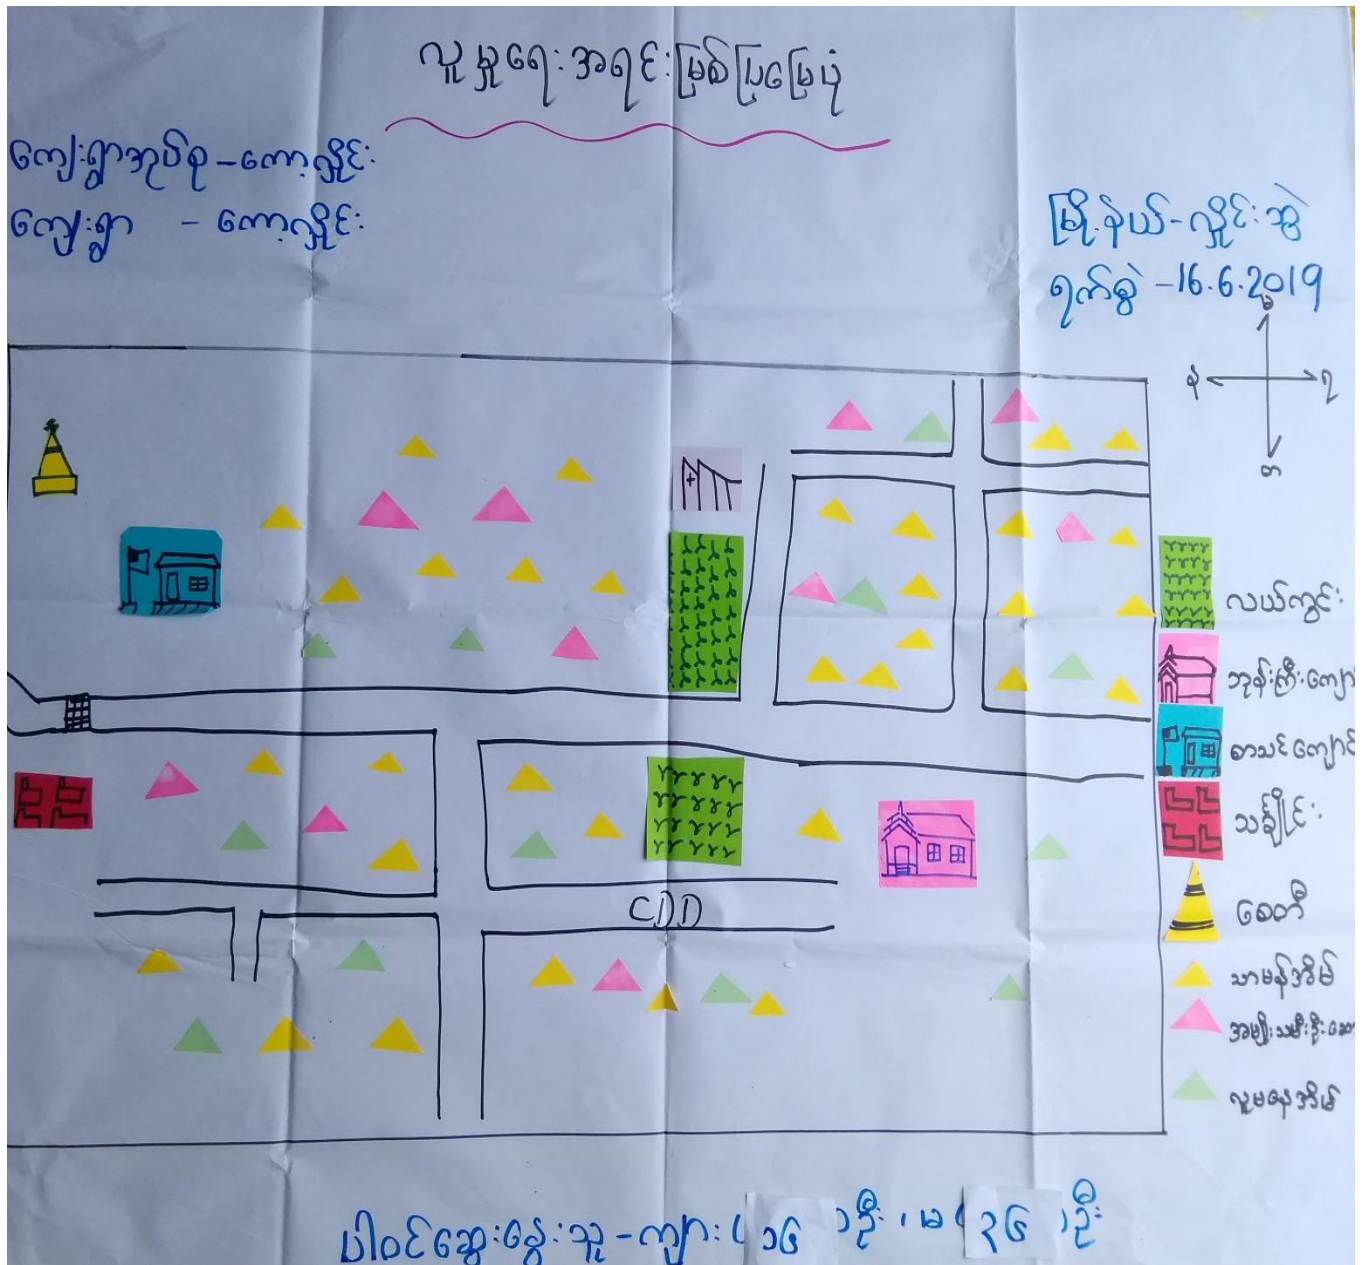 လူမှုရေးအရင်းမြစ်ပြမြေပုံ
ကျေးရွာအုပ်စု - ကော့လှိုင်း
ကျေးရွာ - ကော့လှိုင်း
မြို့နယ် - လှိုင်းဘွဲ
ရက်စွဲ - 16.6.2019
မ
န ရ
တ
လယ်ကွင်း
ဘုန်းကြီးကျော
စာသင်ကျောင်
သင်္ချိုင်း
စေတီ
CDD
သာမန်အိမ်
အမျိုးသမီးဦးဆော
လူမနေအိမ်
ပါဝင်ဆွေးနွေးသူ - ကျား (၁၆) ဦး၊ မ (၃၆) ဦး